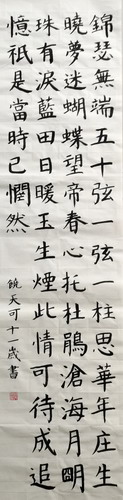 錦瑟無端五十弦一弦一柱思華年庄生
曉夢迷蝴蝶望帝春心托杜鵑滄海月明
珠有淚藍田日暖玉生煙此情可待成追
憶祇是當時已惘然
饒天可十一歲書